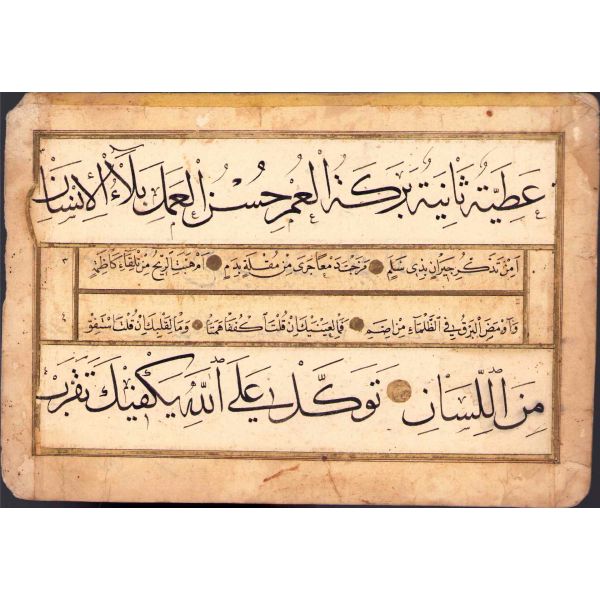 عَطِيَّة ثَانِيَة بَرَكَة العُمْرِ حُسْنُ العَمَل بَلَاءُ الإِنْسَانِ
اَمِنْ تَذَكُّرِ جِيرَانٍ بِذِي سَلَمٍ مَزَجْتَ دَمْعًا جَرَى مِنْ مُقْلَةٍ بِدَمٍ اَمْ هَبَّتِ الرِّيحُ مِنْ تِلْقَاءِ كَاظِمَةٍ
وَاَوْمَضَ البَرْقُ فِي الظَّلْمَاءِ مِنْ اِضَمٍ فَمَا لِعَيْنَيْكَ اِنْ قُلْتَ اكْفُفَا هَمَتَا وَمَا لِقَلْبِكَ اِنْ قُلْتَ اسْتَفِقْ
مِنَ اللِّسَانِ تَوَكَّلْ عَلَى اللهِ يَكْفِيكَ تَقَرَّبْ